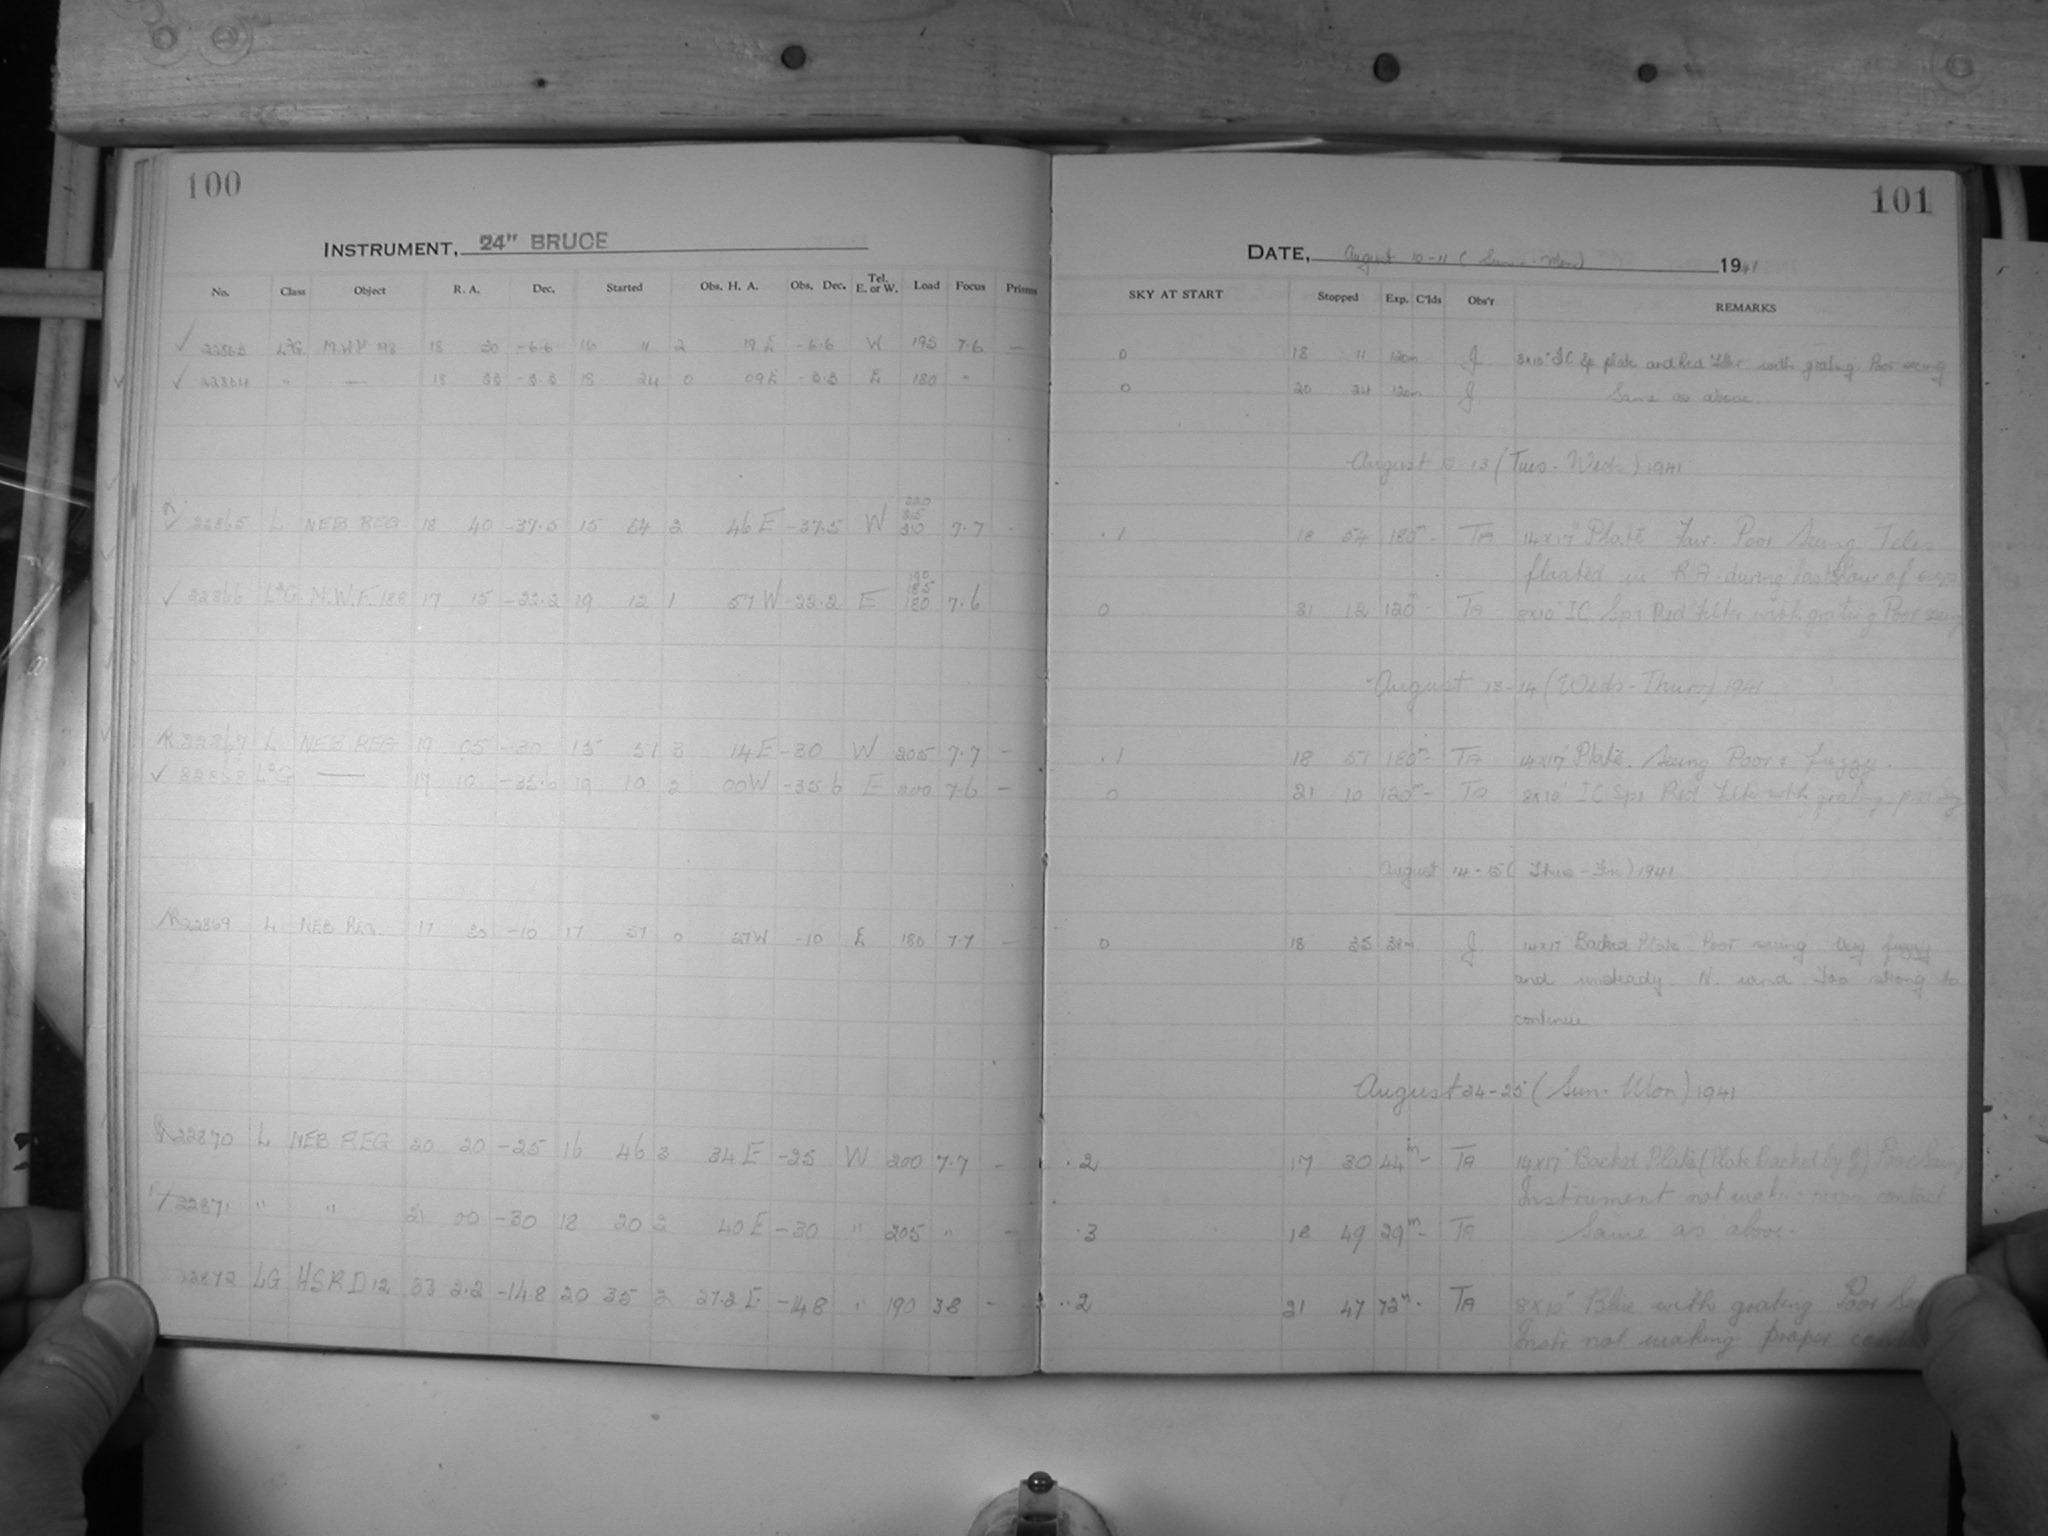 100
INSTRUMENT, 24" BRUCE
No. Class Object R. A. Dec. Started Obs. H. A. Obs. Dec. Tel. E. or W. Load Focus Prisms
22863 18 30 -6.6 16 11 2 19 E -6.6 W 195 7.6 —
22864 " — 18 33 -3.3 18 24 0 09 E -3.3 E 180 "
22865 L NEB REG 18 40 -37.5 15 54 2 46 E -37.5 W 310 7.7
22866 M.W.F. 188 17 15 -22.2 19 12 1 57 W -22.2 E 190 185 180 7.6
22867 L NEB REG 19 05 -30 15 51 3 14 E -30 W 205 7.7 —
22868 — 17 10 -35.6 19 10 2 00 W -35.6 E 200 7.6 —
22869 L NEB REG. 17 30 -10 17 57 0 27 W -10 E 180 7.7 —
22870 L NEB REG 20 20 -25 16 46 3 34 E -25 W 200 7.7 -
22871 " " 21 00 -30 18 20 2 40 E -30 " 205 " —
22872 LG HSRD 12 23 2.2 -14.8 20 35 2 27.2 E -14.8 " 190 3.8 -
101
DATE, August 10-11 (Sun - Mon) 1941
SKY AT START Stopped Exp. C'lds Obs'r REMARKS
0 18 11 120m J 8x10" IC Sp plate and Red filter with grating. Poor seeing
0 20 24 120m J Same as above.
August 13 (Tues - Weds) 1941
.1 18 54 180m - TA 14x17 Plate Poor Seeing
floated in R.A. during last hour of exp
0 21 12 120m - TA 8x10" IC Sps Red filter with grating Poor seeing
August 13-14 (Weds - Thurs) 1941
.1 18 51 180m - TA 14x17 Plate. Seeing Poor & fuzzy.
0 21 10 120m - TA 8x10" IC Sps Red Filter with grating
August 14-15 (Thus - Fri) 1941
0 18 35 38m J 14x17 Backed Plate Poor seeing very fuzzy
and unsteady. N. wind too strong to
continue
August 24-25 (Sun - Mon) 1941
.2 17 30 44m - TA 14x17" Backed Plate (Plate Backed by J) Poor Seeing
Instrument not making proper contact
.3 18 49 29m - TA Same as above -
.2 21 47 72m - TA 8x10" Blue with grating Poor
Instr not making proper